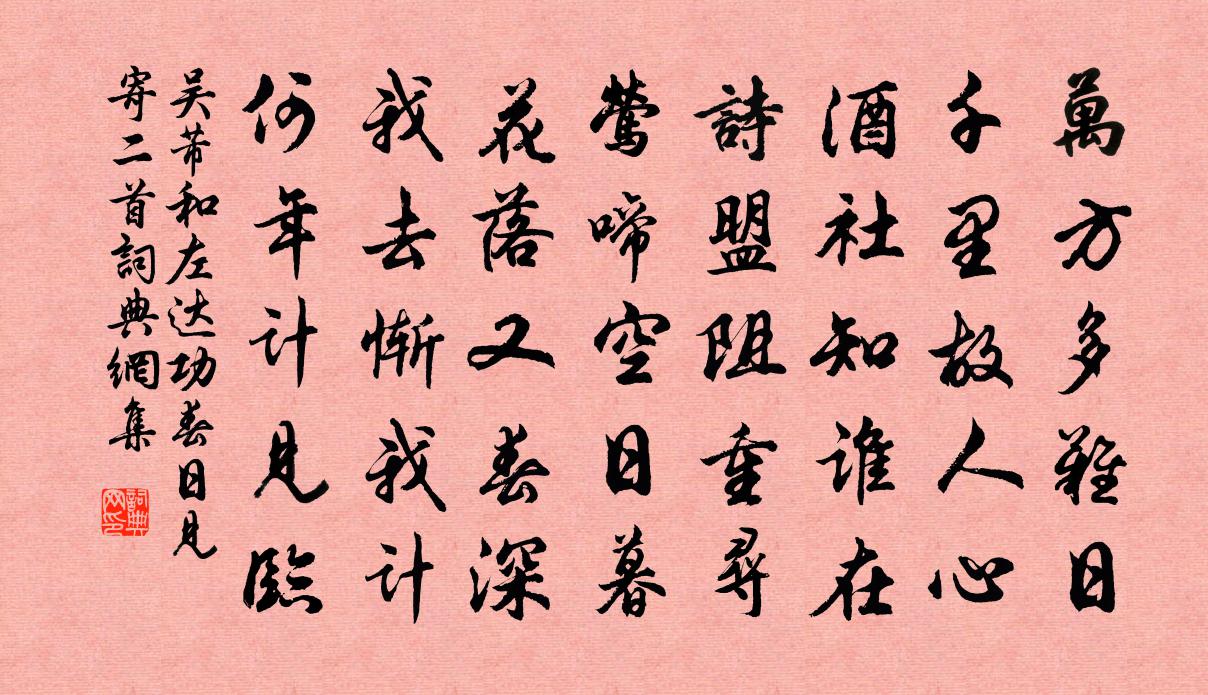 萬方多難日
千里故人心
酒社知誰在
詩盟阻重尋
鶯啼空日暮
花落又春深
我去慚我計
何年計見臨
吴芾和左达功春日見
寄二首詞典網集
詞典网印